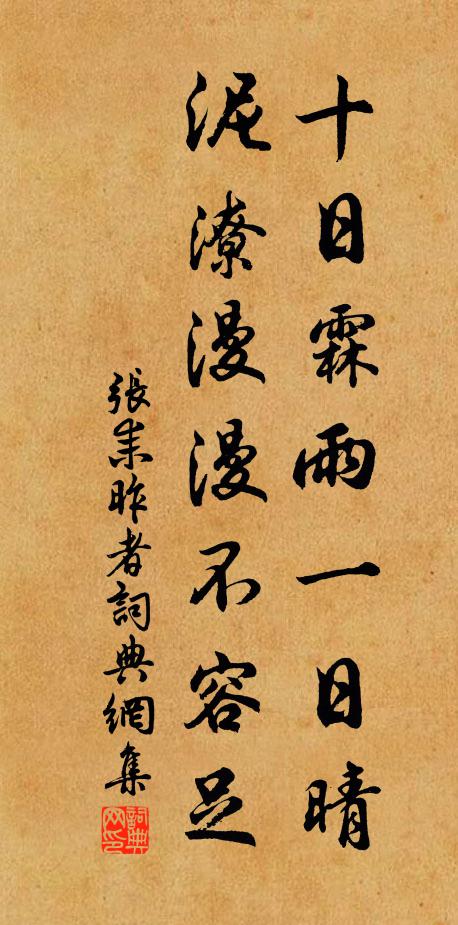 十日霖雨一日晴
泥潦漫漫不容足
張耒昨者詞典網集
詞典網印